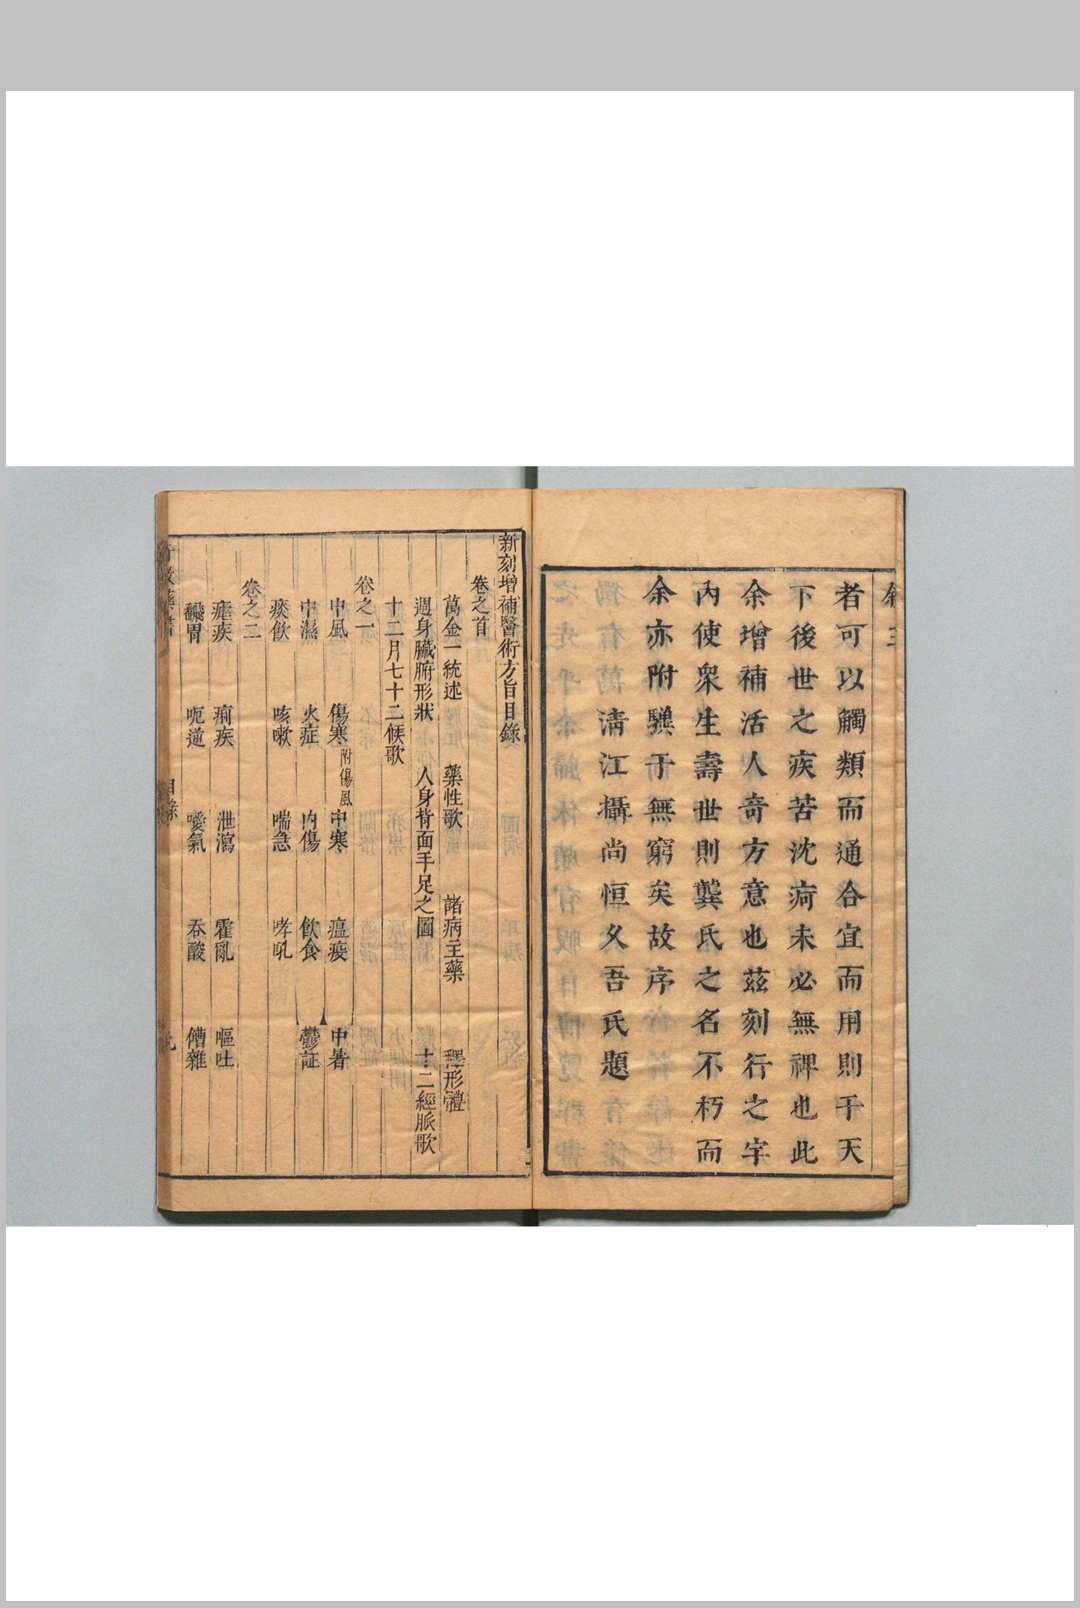 者可以觸類而通合宜而用則于天
下後世之疾苦沈疴未必無裨也此
余增補活人奇方意也茲刻行之宇
內使衆生壽世則龔氏之名不朽而
余亦附驥于無窮矣故序
清江攝尚恒久吾氏題
新刻增補醫術方旨目錄
卷之首
萬金一統述 藥性歌 諸病主藥 釋形體
週身臟腑形狀 人身背面手足之圖 十二經脈歌
十二月七十二候歌
卷之一
中風 傷寒附傷風 中寒 瘟疫 中暑
中濕 火症 內傷 飲食 鬱証
痰飲 咳嗽 喘急 哮吼
卷之二
瘧疾 痢疾 泄瀉 霍亂 嘔吐
翻胃 呃逆 噯氣 吞酸 嘈雜
目錄